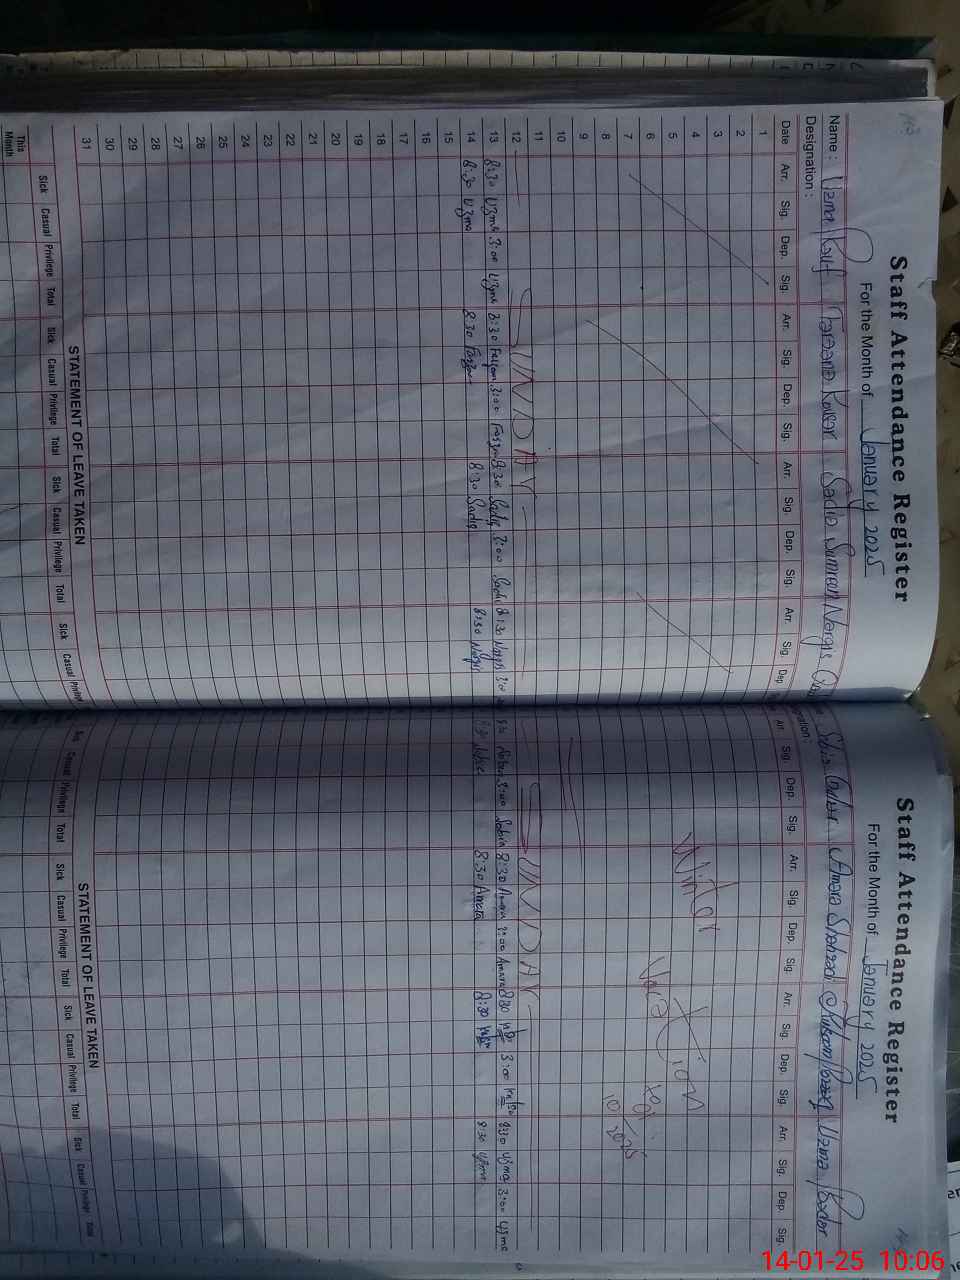 Staff Attendance Register
For the Month of January 2025
Name : Uzma Rauf Farzana Kousar Sadia Sumreen Nargis
Designation :
Date Arr. Sig. Dep. Sig. Arr. Sig. Dep. Sig. Arr. Sig. Dep. Sig. Arr. Sig. Dep
1
2
3
4
5
6
7
8
9
10
11
12 SUNDAY
13 8:30 Uzma 3:00 Uzma 8:30 3:00 8:30 Sadia 3:00 Sadia 8:30 Nargis
14 8:30 Uzma 8:30 8:30 Sadia 8:30 Nargis
15
16
17
18
19
20
21
22
23
24
25
26
27
28
29
30
31
STATEMENT OF LEAVE TAKEN
Sick Casual Privilege Total Sick Casual Privilege Total Sick Casual Privilege Total Sick Casual Privilege
This Month
Staff Attendance Register
For the Month of January 2025
Amara Shahzadi Uzma
Arr. Sig. Dep. Sig. Arr. Sig. Dep. Sig. Arr. Sig. Dep. Sig. Arr. Sig. Dep. Sig.
Winter
SUNDAY
3:00 8:30 Amara 3:00 Amara 8:30 3:00 8:30 Uzma 3:00 Uzma
8:30 Amara 8:30 8:30 Uzma
STATEMENT OF LEAVE TAKEN
Casual Privilege Total Sick Casual Privilege Total Sick Casual Privilege Total Sick Casual Privilege Total
14-01-25 10:06